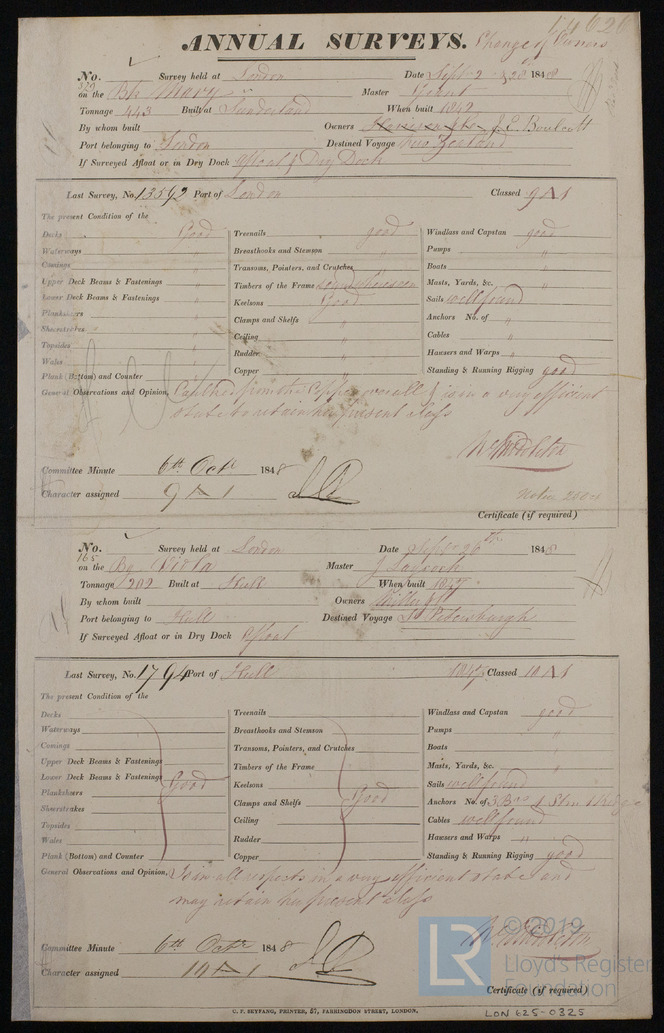 14620
ANNUAL SURVEYS. Change of Owners
No. 320 Survey held at London Date Sept 2 & 28th 1848
on the Bk Mary Master Grant
Tonnage 443 Built at Sunderland When built 1842
By whom built Owners J. E. Boulcott
Port belonging to London Destined Voyage New Zealand
If Surveyed Afloat or in Dry Dock Afloat & Dry Dock
Last Survey, No. 13592 Port of London Classed 9 A 1
The present Condition of the
Decks Good Treenails good Windlass and Capstan good
Waterways " Breasthooks and Stemson Pumps "
Comings " Transoms, Pointers, and Crutches Boats "
Upper Deck Beams & Fastenings " Timbers of the Frame Masts, Yards, &c. "
Lower Deck Beams & Fastenings " Keelsons Good Sails well found
Plankshears " Clamps and Shelfs " Anchors No. of "
Sheerstrakes " Ceiling " Cables "
Topsides " Rudder " Hawsers and Warps "
Wales " Copper " Standing & Running Rigging good
Plank (Bottom) and Counter "
General Observations and Opinion, Caulked from the Copper over all & is in a very efficient
state to retain her present class
Wm Middleton
Committee Minute 6th Octr 1848
Character assigned 9 A 1
Certificate (if required)
No. 165 Survey held at London Date Sepr 26th 1848
on the Bg Viola Master J Laycock
Tonnage 202 Built at Hull When built 1847
By whom built Owners
Port belonging to Hull Destined Voyage St Petersburgh
If Surveyed Afloat or in Dry Dock Afloat
Last Survey, No. 1794 Port of Hull 1847 Classed 10 A 1
The present Condition of the
Decks Treenails Windlass and Capstan good
Waterways Breasthooks and Stemson Pumps "
Comings Transoms, Pointers, and Crutches Boats "
Upper Deck Beams & Fastenings Timbers of the Frame Masts, Yards, &c. "
Lower Deck Beams & Fastenings Good Keelsons Sails well found
Plankshears Clamps and Shelfs Good Anchors No. of 3 Bow 1 Stm 1 Kedge
Sheerstrakes Ceiling Cables well found
Topsides Rudder Hawsers and Warps "
Wales Copper Standing & Running Rigging good
Plank (Bottom) and Counter
General Observations and Opinion, Is in all respects in a very efficient state and
may retain her present class
Wm Middleton
Committee Minute 6th Octr 1848
Character assigned 10 A 1
Certificate (if required)
C. F. SEYFANG, PRINTER, 57, FARRINGDON STREET, LONDON.
LON 625-0325
LR
©2019
Lloyd's Register
Foundation